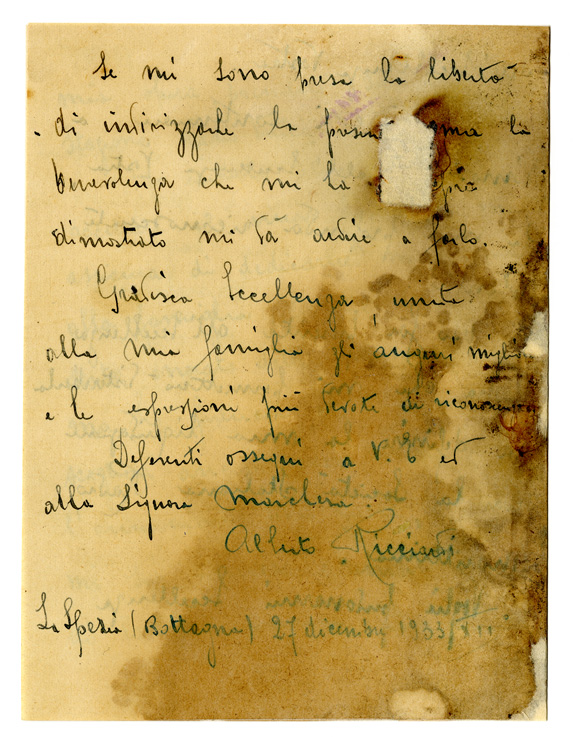 Se mi sono presa la libertà
di indirizzarle la presente ma la
benevolenza che mi ha
dimostrato mi dà ardire a farlo.
Gradisca Eccellenza, unita
alla mia famiglia gli auguri migliori
e le espressioni più devote di riconoscenza
Deferenti ossequi a V. E ed
alla Signora Marchesa.
Alberto Ricciardi
La Spezia (Bottagna) 27 dicembre 1933/XII